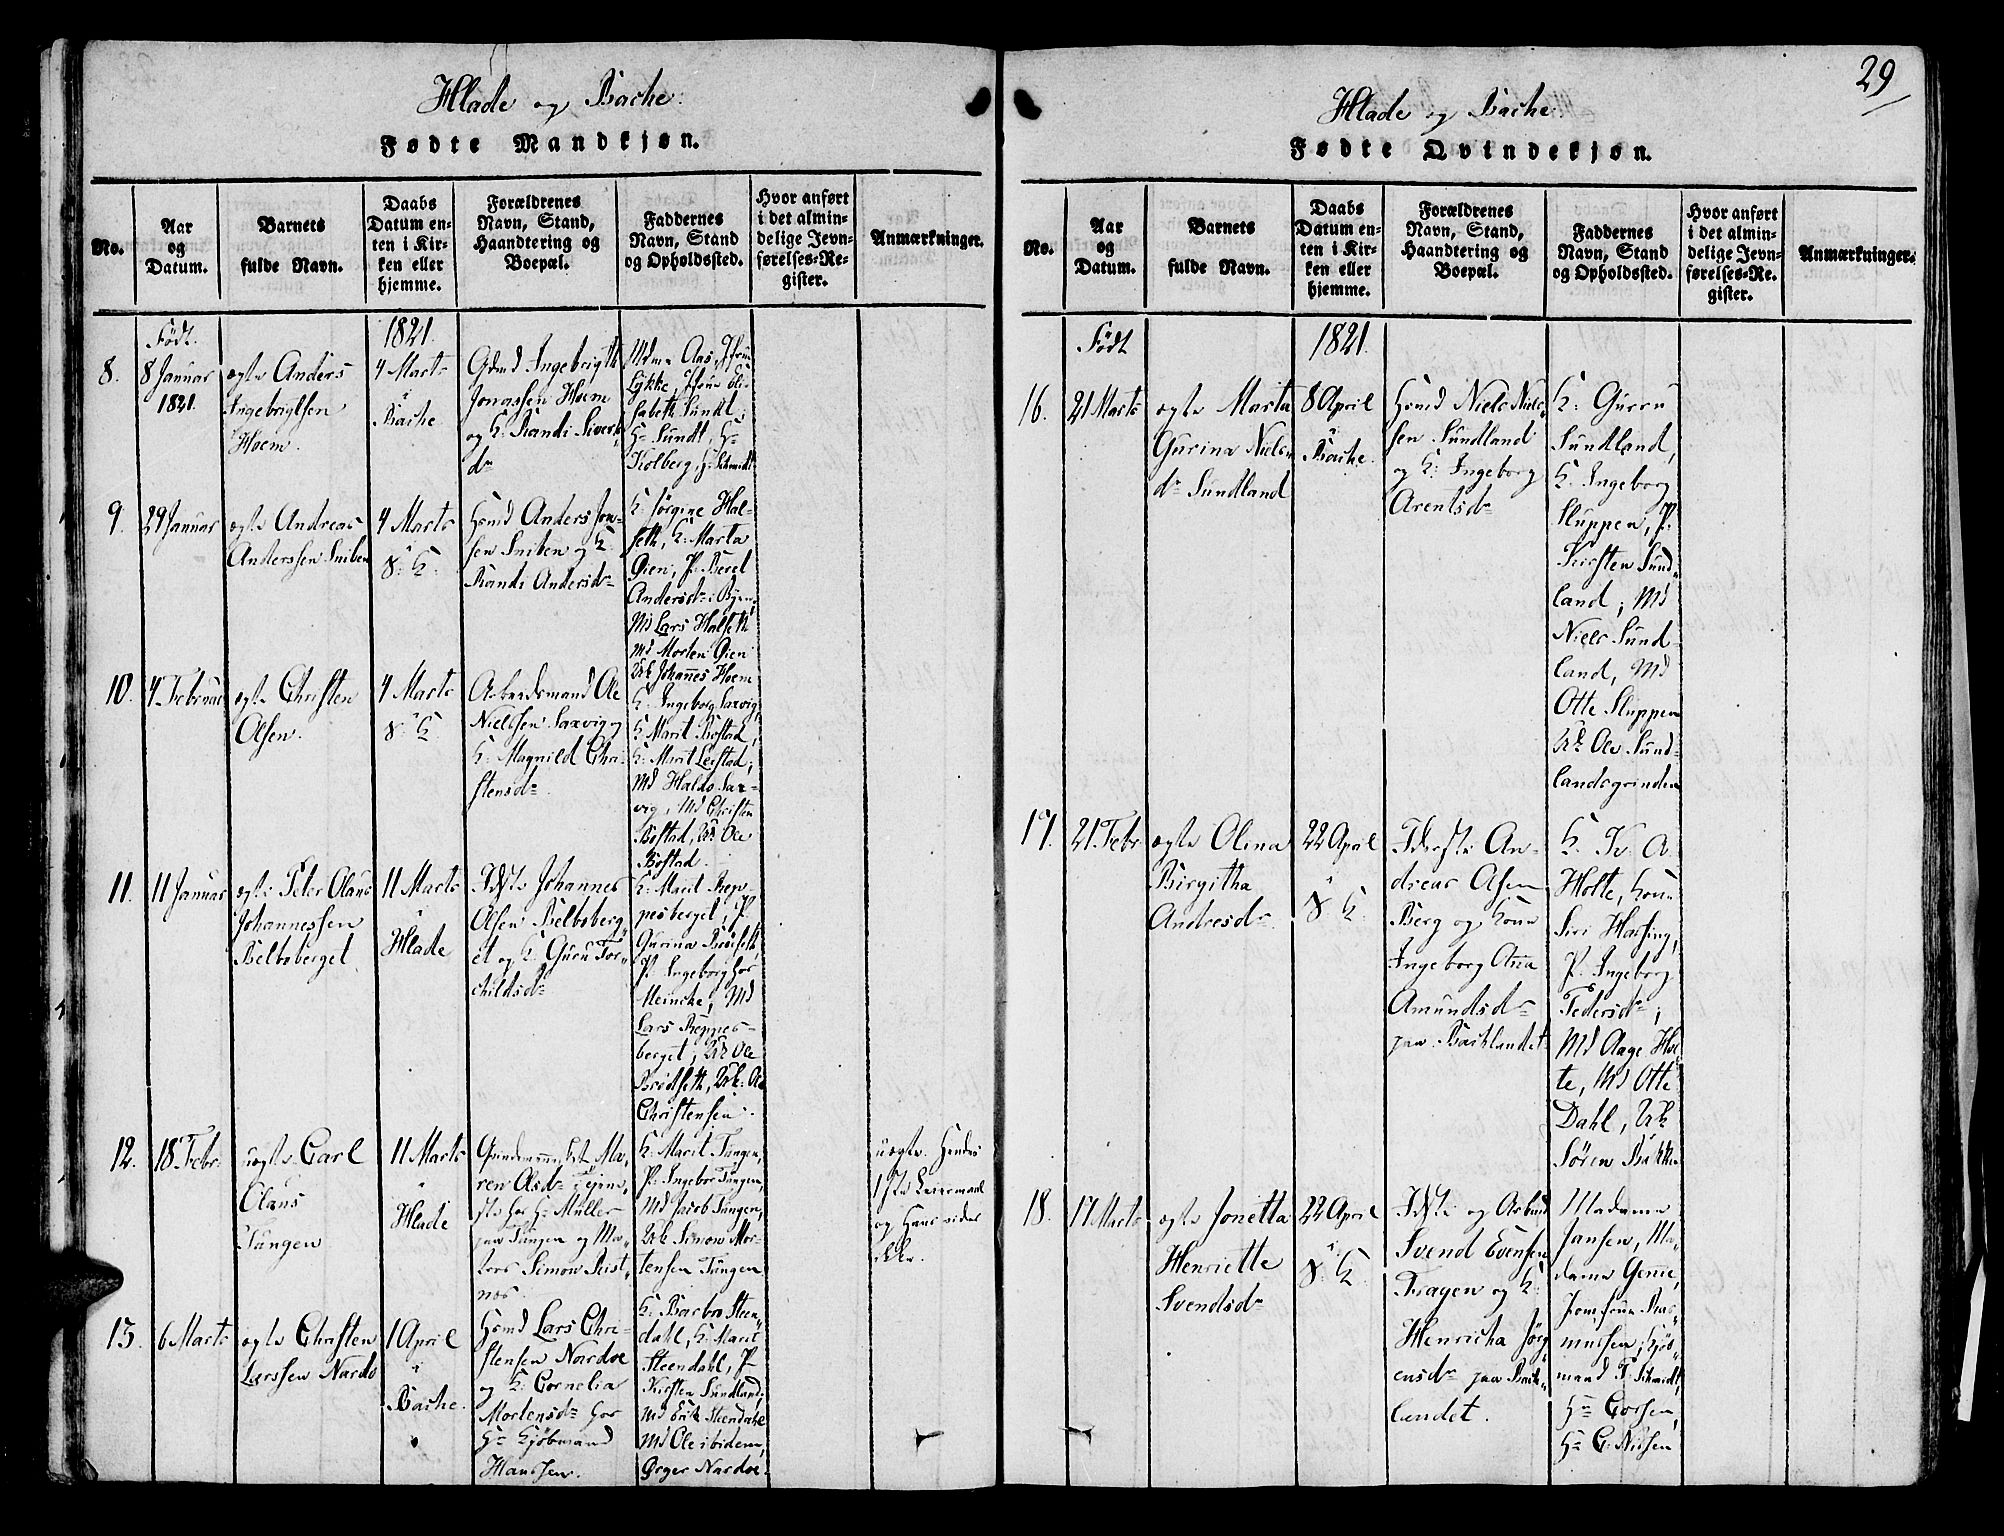 Hlade og Bache.
Fødte Mandkjøn.
No.
Aar
og
Datum.
Barnets
fulde Navn.
Daabs
Datum en-
ten i Kir-
ken eller
hjemme.
Forældrenes
Navn, Stand,
Haandtering og
Boepæl.
Faddernes
Navn, Stand
og Opholdssted.
Hvor anført
i det almin-
delige Jevn-
førelses-Re-
gister.
Anmærkninger.
Født
1821.
8.
8 Januar
1821.
ægte Anders
Ingebrigtsen
Hoem.
4 Marts
i
Bache
Gdmd Ingebrigth
Jonassen Hoem
og K. Randi Sivert
dr
Mdme Aas, Jfrue
Lykke, Jfrue Eli-
sabeth Sundt,
Hr Sundt, Hr
Kolberg, Hr Schmidt
9.
29 Januar
ægte Andreas
Anderssen Sniben
4 Marts
i
V: K.
Hsmd Anders Jon-
sen Sniben og K.
Randi Andersdr
K. Jørgine Hal-
seth, K. Marta
Øien, P. Berel
Andersdr i Byen,
Md Lars Halseth
Md Morten Øien
Uk Johannes Hoem
10.
4 Februar
ægte Christen
Olsen.
4 Marts
i
V: K.
Arbeidsmand Ole
Nielssen Saxvig og
K. Magnild Chri-
stensdr
K. Ingeborg Saxvig,
K. Marit Bostad,
K. Marit Leistad,
Md Haldo Sax-
vig, Md Christen
Bostad, Uk Ole
Bostad.
11.
11 Januar
ægte Peter Olaus
Johannessen
Belbsberget
11 Marts
i
Hlade
Idste Johannes
Olsen Belbsberg-
et og K. Guru Tor-
childsdr
K. Marit Rep-
pesberget, P.
Gurina Brøseth,
P. Ingeborg hos
Meincke, Md
Lars Reppes-
berget, Uk Ole
Brødseth, Uk. Ole
Christensen.
12.
18 Febr.
uægte Carl
Olaus
Tungen
11 Marts
i
Hlade
Pigen Ma-
ren Olsdr Tjene-
ste hos Hr Müller
paa Tungen og Ma-
tros Simon Reist-
nes.
K. Marit Tungen,
P. Ingebor Tungen,
Md Jacob Tungen,
Uk Simon Mor-
tensen Tungen
uægte. Hendes
1ste Leiermaal
og Hans vides
ikke.
13.
6 Marts
ægte Christen
Larssen Nardo
1 April
i
Bache.
Hsmd Lars Chri-
stensen Nardoe
og K. Cornelia
Mortensdr hos
Hr Kjøbmand
Hanssen.
K. Barbro Steen-
dahl, K. Marit
Steendahl, P.
Kirsten Sundland,
Md Erik Steendahl
Md Ole ibidem,
Ørger Nardoe.
29
Hlade og Bache.
Fødte Qvindekjøn.
No.
Aar
og
Datum.
Barnets
fulde Navn.
Daabs
Datum en-
ten i Kir-
ken eller
hjemme.
Forældrenes
Navn, Stand,
Haandtering og
Boepæl.
Faddernes
Navn, Stand
og Opholdssted.
Hvor anført
i det almin-
delige Jevn-
førelses-Re-
gister.
Anmærkninger.
Født
1821.
16.
21 Marts
ægte Marta
Gurina Niels-
dr Sundland
8 April
i
Bache.
Hsmd Niels Niel-
sen Sundland
og K. Ingeborg
Arentsdr
K. Guru
Sundland,
K. Ingeborg
Sluppen, P.
Kirsten Sund-
land, Md
Niels Sund
land, Md
Otte Sluppen
Uk Ole Sund-
landsgrinden
17.
21 Febr
ægte Olina
Birgitha
Andresdr
22 April
i
V: K.
Iderste An-
dreas Olsen
Berg og Kone
Ingeborg Anna
Amundsdr
paa Baklandet
K. K. A.
Holte, Kone
Siri Harsing,
P. Ingeborg
Pedersdr,
Md Aage Hol-
te, Md Otte
Dahl, Uk
Søren Bakken
18.
17 Marts
ægte Jonetta
Henriette
Svendsdr
22 April
i
V: K.
Idste og Arbmd
Svend Evensen
Dragen og K.
Henricha Jørg-
ensdr paa Bak-
landet.
Madame
Jansen, Ma-
dame Genne,
Jomfrue Ras-
mussen, Kjøb-
mand T. Schmidt,
Hr Corsen,
Hr C. Nissen